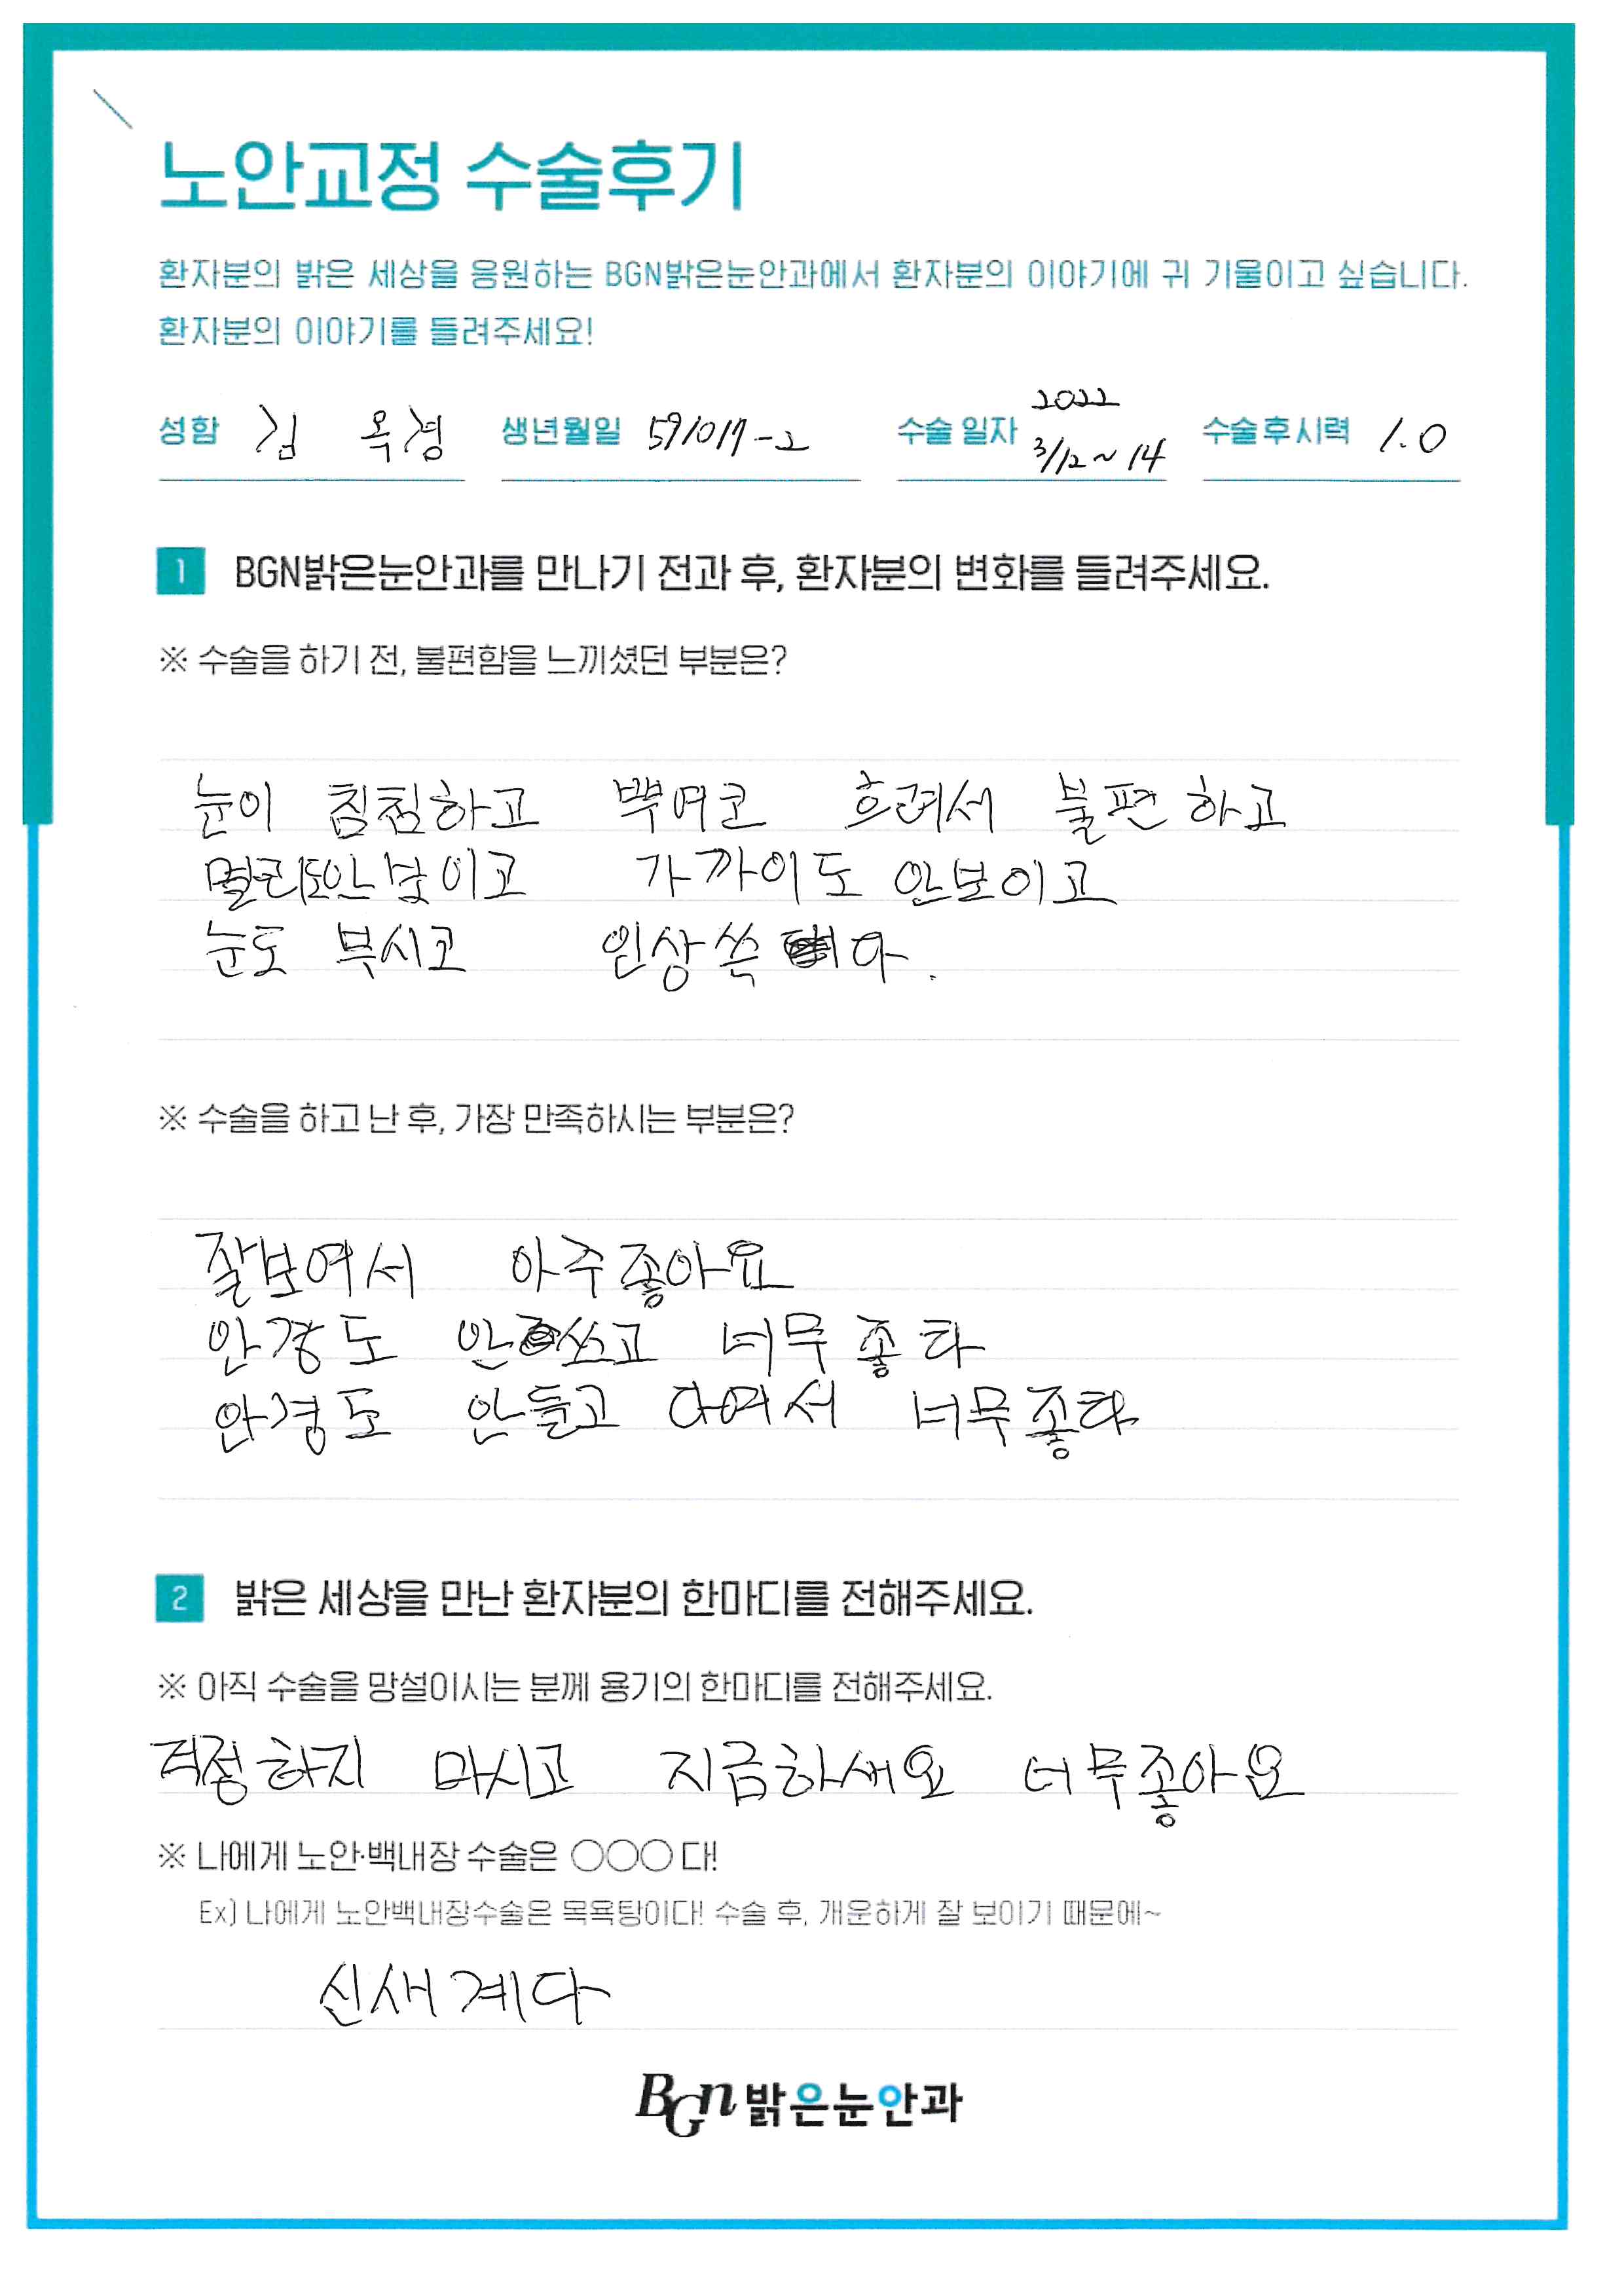 노안교정 수술후기
환자분의 밝은 세상을 응원하는 BGN밝은눈안과에서 환자분의 이야기에 귀 기울이고 싶습니다.
환자분의 이야기를 들려주세요!
성함 김 옥경 생년월일 591017-2 수술 일자 2022 3/12~14 수술후시력 1.0
1 BGN밝은눈안과를 만나기 전과 후, 환자분의 변화를 들려주세요.
※ 수술을 하기 전, 불편함을 느끼셨던 부분은?
눈이 침침하고 뿌여코 흐려서 불편하고
멀리도안보이고 가까이도 안보이고
눈도 부시고 인상쓴다.
※ 수술을 하고 난 후, 가장 만족하시는 부분은?
잘보여서 아주좋아요
안경도 안쓰고 너무좋타
안경도 안들고 다여서 너무좋타
2 밝은 세상을 만난 환자분의 한마디를 전해주세요.
※ 아직 수술을 망설이시는 분께 용기의 한마디를 전해주세요.
걱정하지 마시고 지금하새요 너무좋아요
※ 나에게 노안·백내장 수술은 ○○○다!
Ex) 나에게 노안백내장수술은 목욕탕이다! 수술 후, 개운하게 잘 보이기 때문에~
신새계다
BGn밝은눈안과